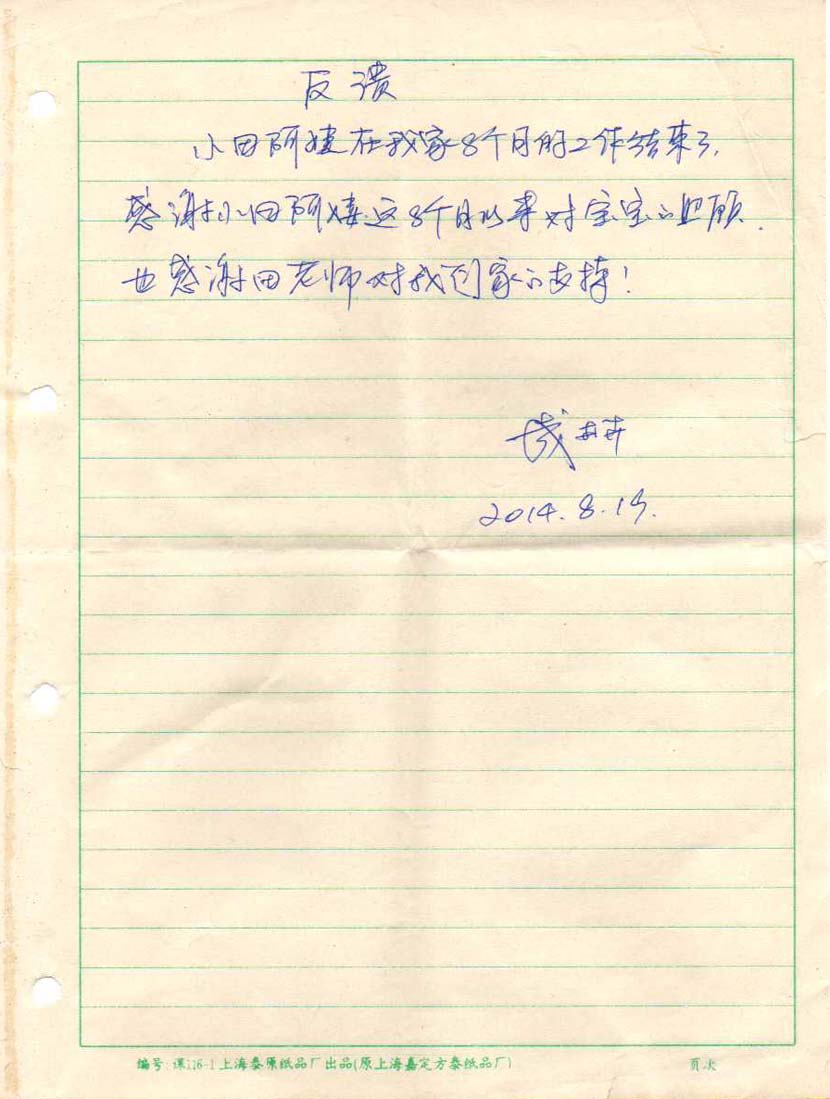 反溃
小田阿姨在我家8个月的工作结束了,
感谢小田阿姨这8个月以来对宝宝的照顾.
也感谢田老师对我们家的支持!
2014.8.13.
编号:课116-1上海泰原纸品厂出品(原上海嘉定方泰纸品厂)
页次